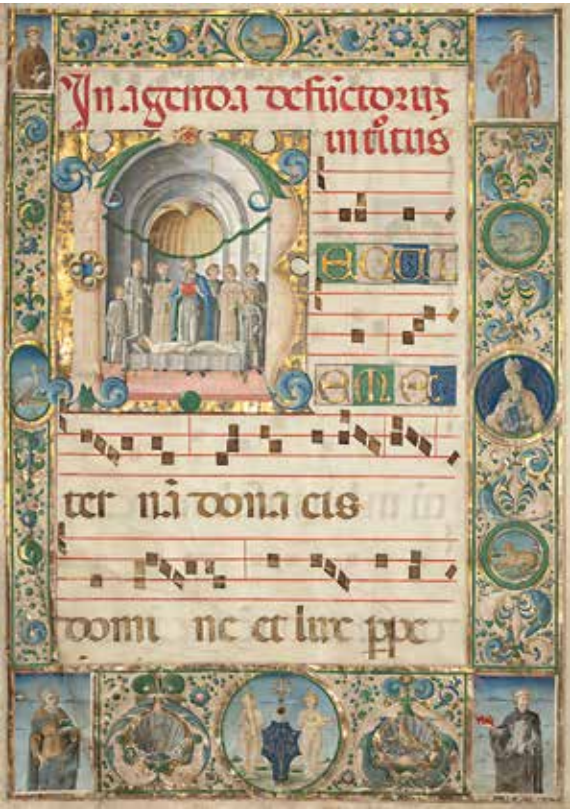 In agenda defūctoruꝫ
intͦitus
REQUI
EM E
ter nā dona eis
domi ne et lux ppe